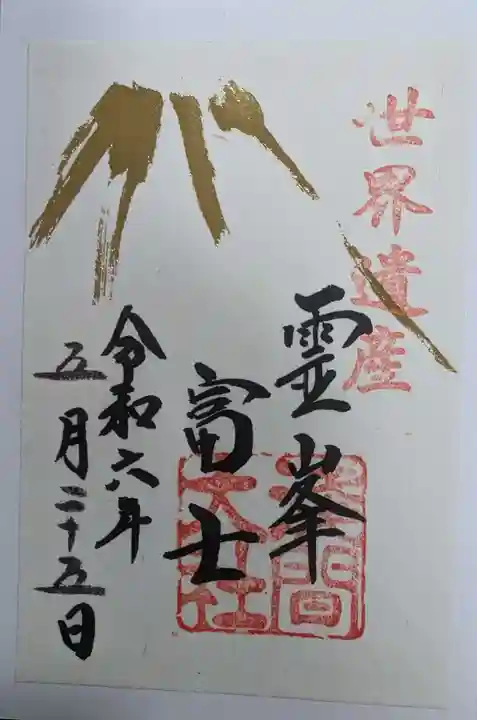 世界遺産
霊峯
富士
浅間
大社
令和六年
五月二十五日